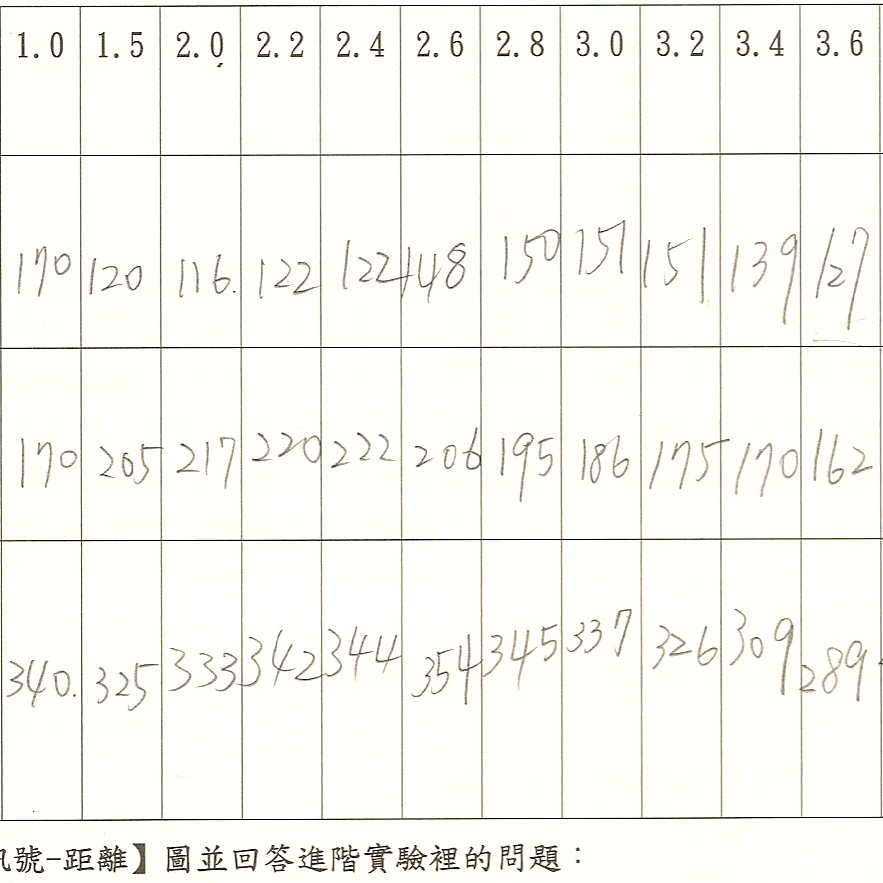 1.0 1.5 2.0 2.2 2.4 2.6 2.8 3.0 3.2 3.4 3.6
170 120 116. 122 122 148 150 151 151 139 127
170 205 217 220 222 206 195 186 175 170 162
340. 325 333 342 344 354 345 337 326 309 289
號-距離】圖並回答進階實驗裡的問題：